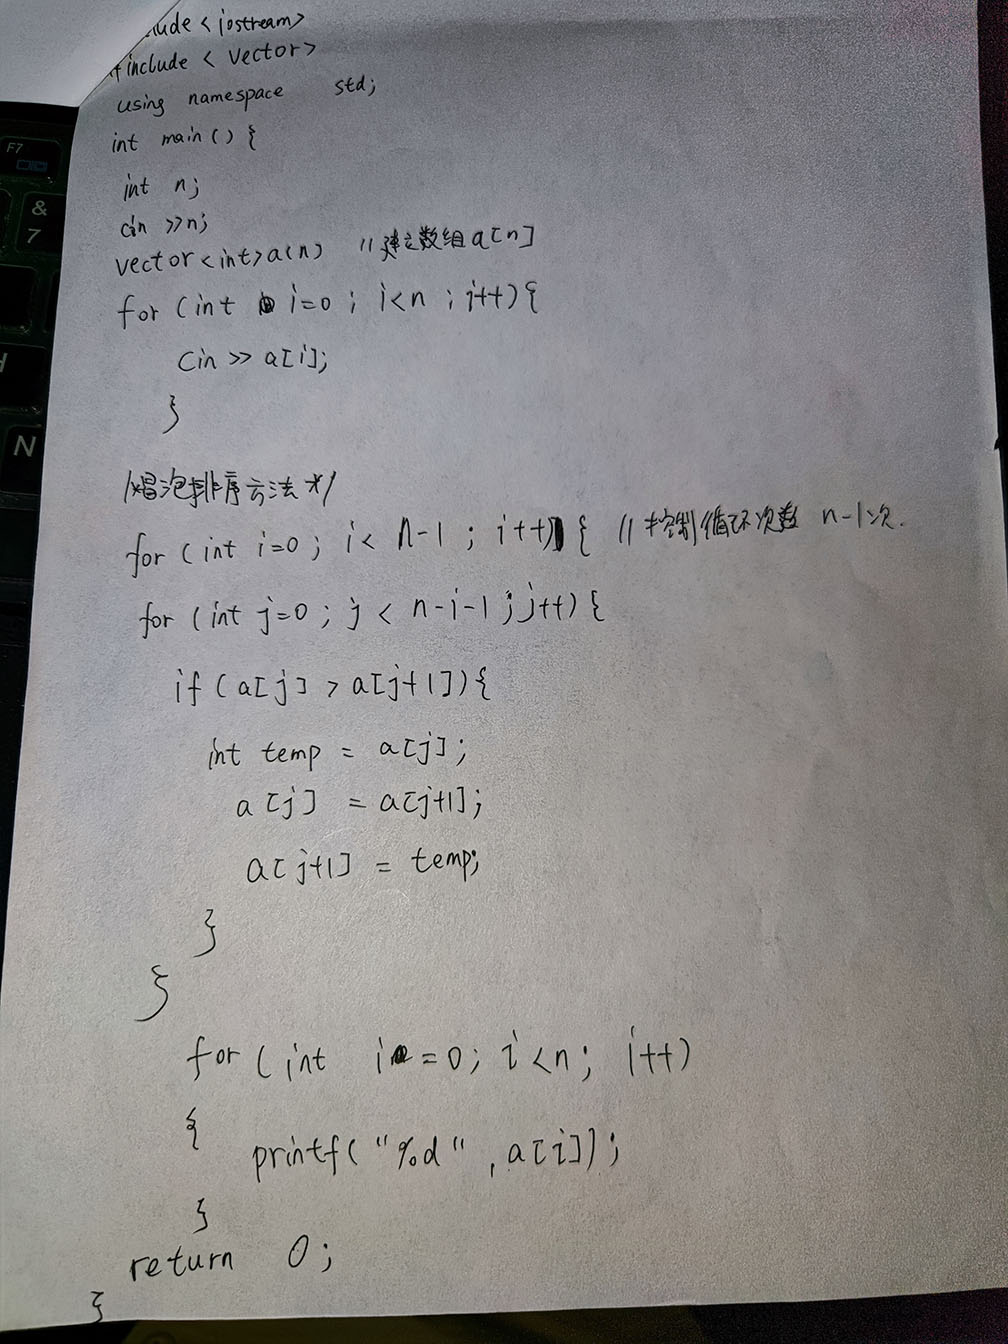 lude <iostream>
#include < vector>
using namespace std;
int main() {
int n;
cin >>n;
vector<int>a(n) //建立数组a[n]
for (int i=0 ; i<n ; i++){
cin >> a[i];
}
/*冒泡排序方法*/
for (int i=0; i< n-1 ; i++) { //控制循环次数 n-1次.
for (int j=0; j < n-i-1 ; j++) {
if (a[j] > a[j+1]){
int temp = a[j];
a[j] = a[j+1];
a[j+1] = temp;
}
}
for (int i=0; i<n; i++)
{
printf("%d", a[i]);
}
return 0;
}
F7
&
7
N